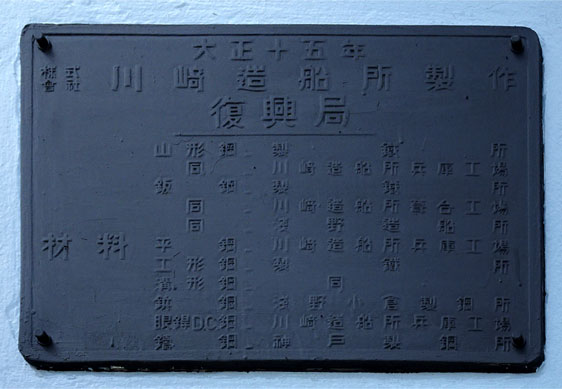 大正十五年
株式會社 川崎造船所製作
復興局
材料
山形鋼 製鐵所
同 川崎造船所兵庫工場
鈑鋼 製鐵所
同 川崎造船所葺合工場
同 淺野造船所
平鋼 川崎造船所兵庫工場
工形鋼 製鐵所
溝形鋼 同
鋲鋼 淺野小倉製鋼所
眼鐶DC鋼 川崎造船所兵庫工場
鑄鋼 神戸製鋼所